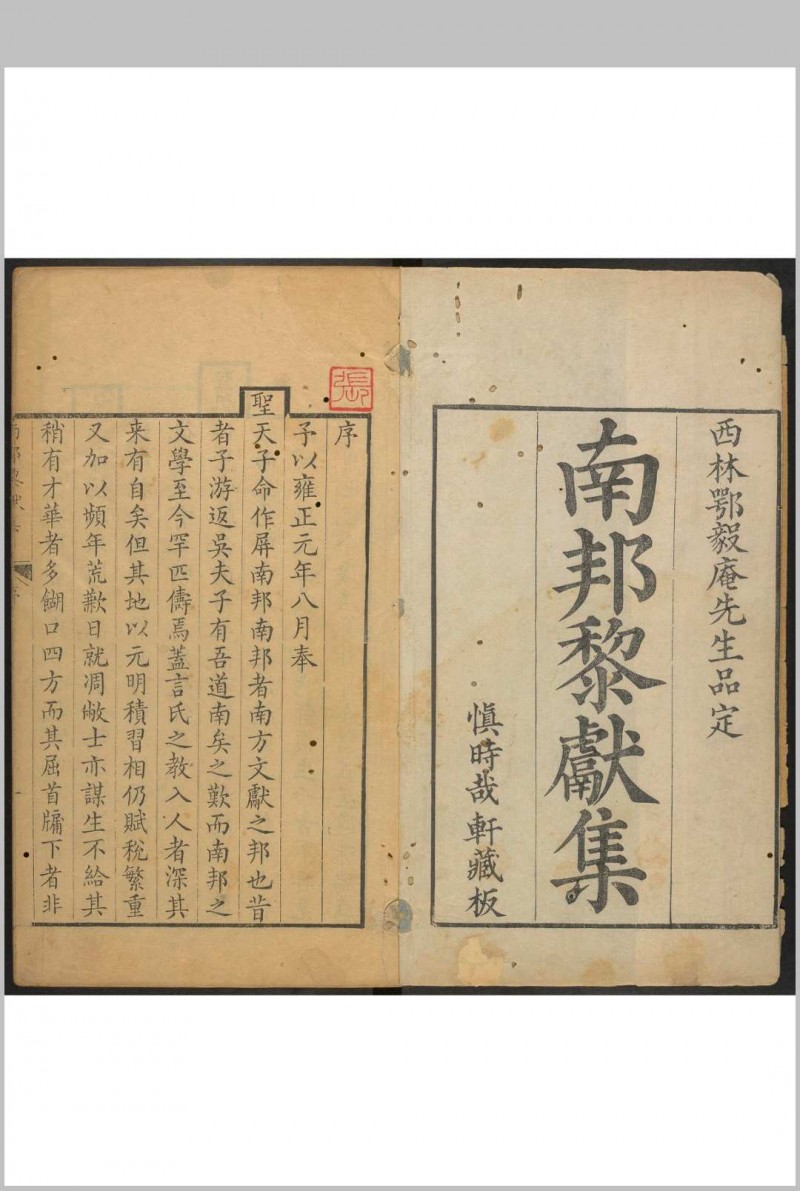 西林鄂毅庵先生品定
南邦黎獻集
慎時哉軒藏板
張
序
予以雍正元年八月奉
聖天子命作屏南邦南邦者南方文獻之邦也昔
者子游返吳夫子有吾道南矣之歎而南邦之
文學至今罕匹儔焉蓋言氏之教入人者深其
来有自矣但其地以元明積習相仍賦稅繁重
又加以頻年荒歉日就凋敝士亦謀生不給其
稍有才華者多餬口四方而其屈首牖下者非